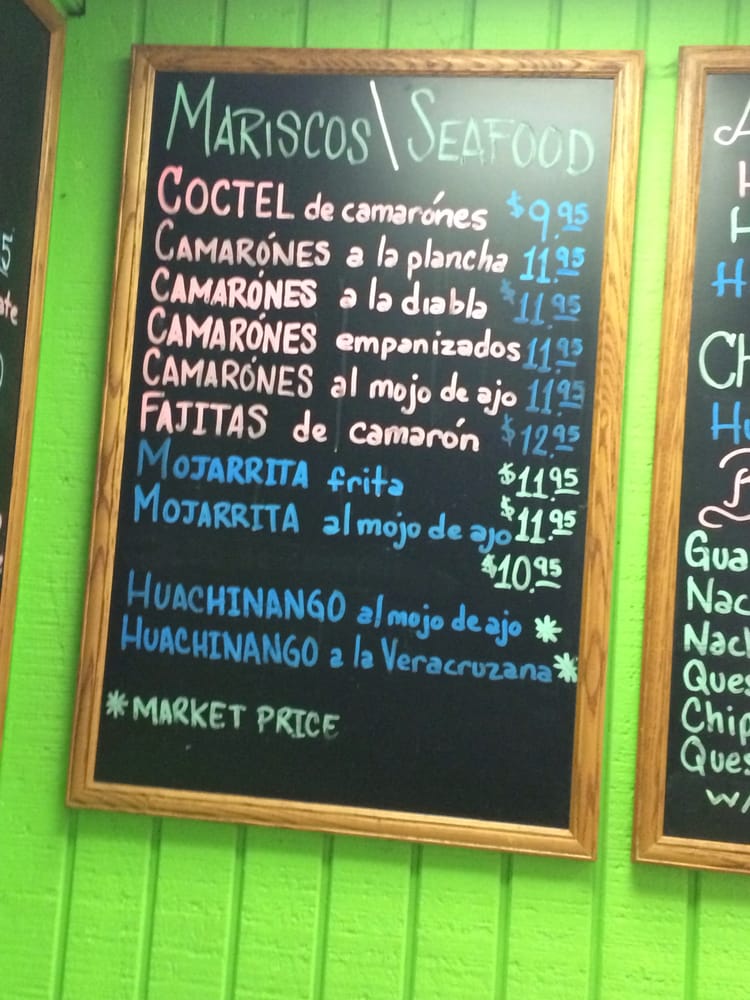 MARISCOS\SEAFOOD
COCTEL de camarónes $9.95
CAMARÓNES a la plancha 11.95
CAMARÓNES a la diabla $11.95
CAMARÓNES empanizados 11.95
CAMARÓNES al mojo de ajo 11.95
FAJITAS de camarón $12.95
MOJARRITA frita $11.95
MOJARRITA al mojo de ajo $11.95
$10.95
HUACHINANGO al mojo de ajo *
HUACHINANGO a la Veracruzana *
*MARKET PRICE